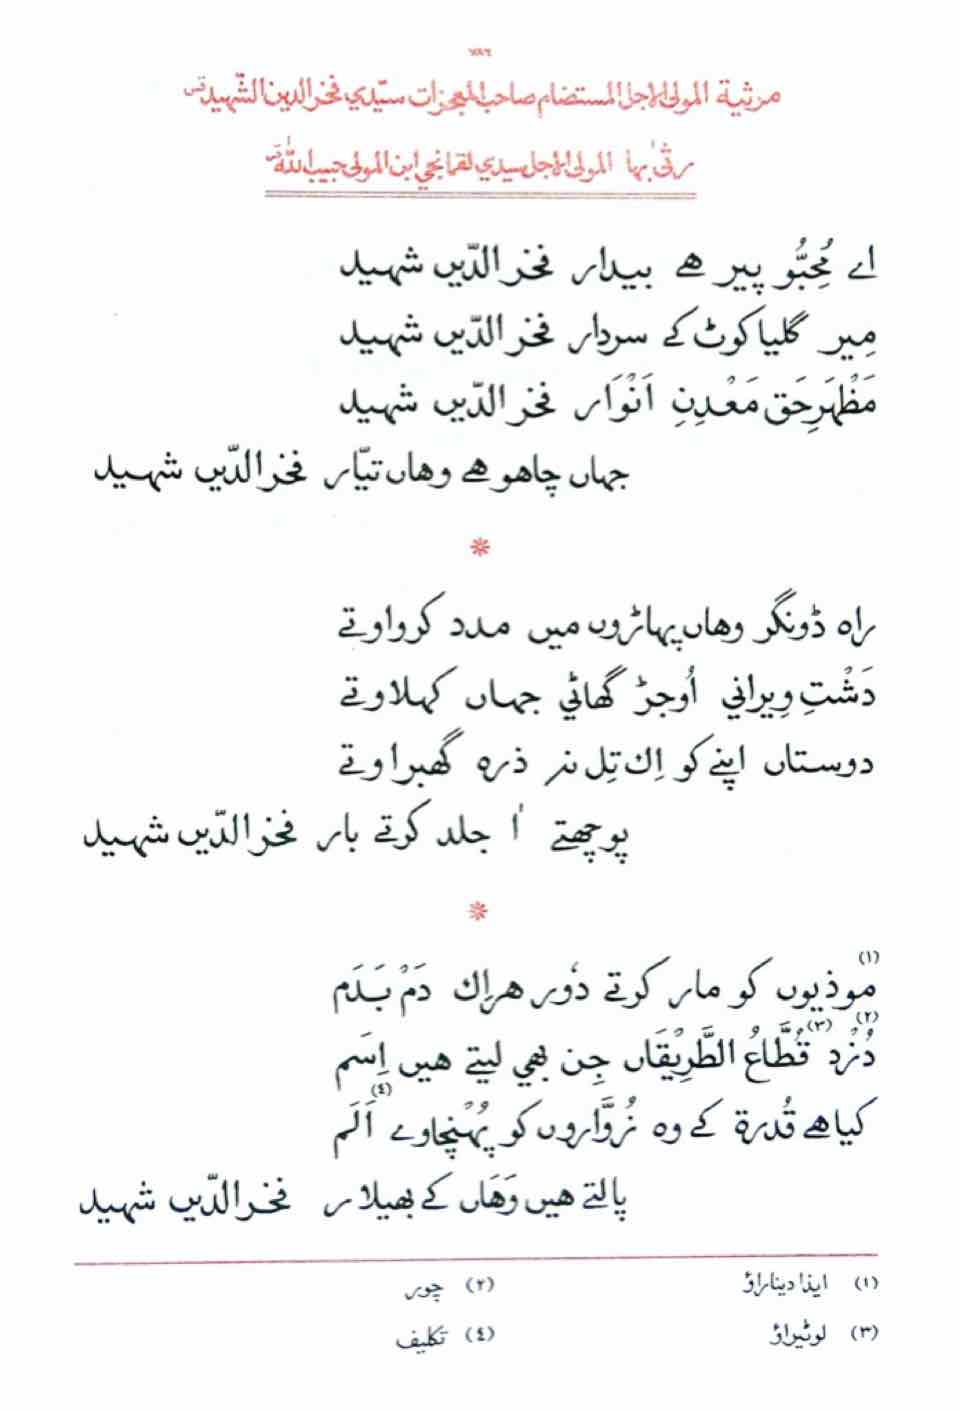 ٧٨٦
مرثية المولى الاجل المستضام صاحب المعجزات سيّدي فخر الدين الشّهيد قس
رثى بها المولى الاجل سيدي لقمانجي ابن المولى حبيب الله قس
اے مُحِبُّو پیر ھے بیدار فخر الدّیں شھید
مِیر گلیاکوٹ کے سردار فخر الدّیں شھید
مَظْهَرِحَق مَعْدِنِ اَنْوَار فخر الدّیں شھید
جہاں چاھو ھے وھاں تیّار فخر الدّیں شھید
*
راہ ڈونگر وھاں پہاڑوں میں مدد کرواوتے
دَشْتِ وِیرانی اُوجڑ گھاٹی جہاں کہلاوتے
دوستاں اپنے کو اِك تِل نہ ذرہ گھبراوتے
پوچھتے آ جلد کرتے بار فخر الدّیں شھید
*
(١) موذیوں کو مار کرتے دُور ھراِك دَمْ بَدَم
(٢) دُزْد (٣) قُطَّاعُ الطَّرِیْقَاں جِن بھی لیتے ھیں اِسَم
کیا ھے قُدرۃ کے وہ زُوَّاروں کو پُہْنچاوے (٤) اَلَم
پالتے ھیں وَھَاں کے بھیلار فخر الدّیں شھید
(١) ایذا دیناراؤ (٢) چور
(٣) لوٹیراؤ (٤) تکلیف